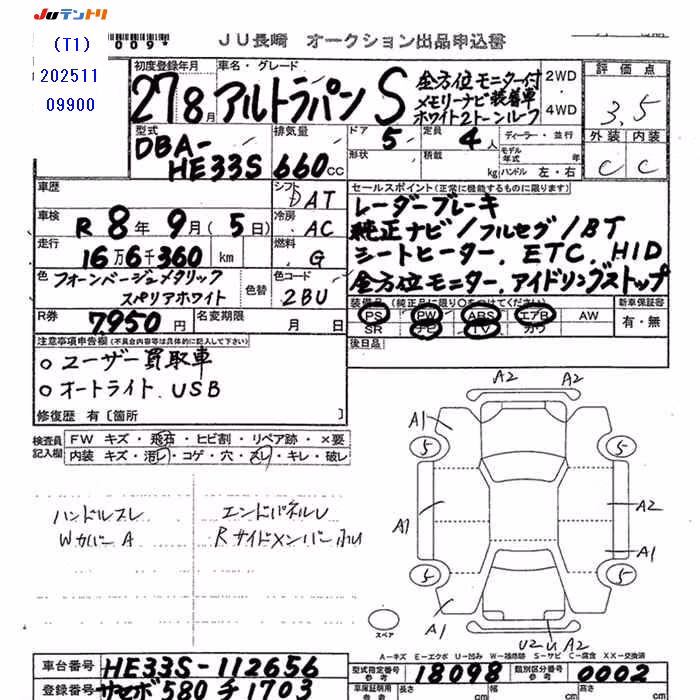 JUテントリ
(T1)
202511
09900
009*
JU長崎 オークション出品申込書
初度登録年月
車名・グレード
27 8月
アルトラパン S
全方位モニター付
メモリーナビ装着車
ホワイト2トーンルーフ
2WD
4WD
評価点
3.5
外装 内装
C C
型式
DBA-
HE33S
排気量
660cc
ドア 5
形状
定員 4人
積載 kg
ディーラー・並行
モデル年式 年
ハンドル 左・右
車歴
シフト DAT
車検 R 8年 9月(5日)
冷房 AC
走行 16万6千360 km
燃料 G
色 フォーンベージュメタリック
スペリアホワイト
色替
色コード 2BU
R券 7,950円
名変期限 月 日
セールスポイント(正常に機能するものに限ります)
レーダーブレーキ
純正ナビ/フルセグ/BT
シートヒーター、ETC、HID
全方位モニター、アイドリングストップ
装備品(純正品に限り○をつけてください)
PS PW ABS エアB AW
SR ナビ TV カワ
新車保証書
有・無
後日品
注意事項申告欄(不具合内容等は具体的に記入して下さい)
○ ユーザー買取車
○ オートライト、USB
修復歴 有〔箇所 〕
検査員記入欄
FW キズ・飛石・ヒビ割・リペア跡・×要
内装 キズ・汚レ・コゲ・穴・スレ・キレ・破レ
ハンドルスレ
Wカバー A
エンドパネルレ
A2 A2
A1
5 5
A1 A2
A1
5 5
A1
スペア
U2 A2
A-キズ E-エクボ U-凹み W-補修跡 S-サビ C-腐食 XX-交換済
車台番号 HE33S-112656
登録番号 サセボ580チ1703
型式指定番号 参考 18098
類別区分番号 参考 0002
車庫証明用 参考
長さ cm
cm
cm